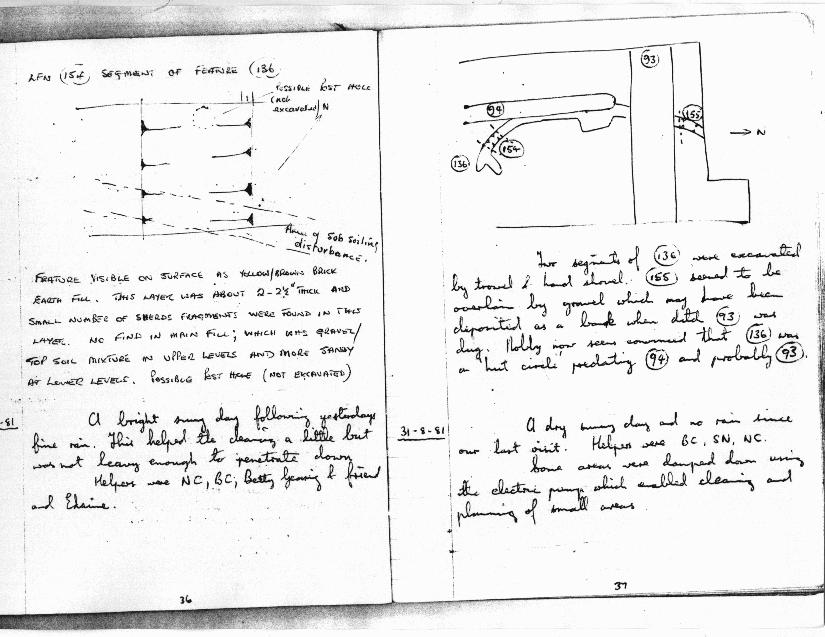 LFN (154) SEGMENT OF FEATURE (136
POSSIBLE POST HOLE
(not
excavated) N
Area of Sub Soiling
disturbance.
FEATURE VISIBLE ON SURFACE AS YELLOW/BROWN BRICK
EARTH FILL. THIS LAYER WAS ABOUT 2-2½" THICK AND
SMALL NUMBER OF SHERDS FRAGMENTS WERE FOUND IN THIS
LAYER. NO FIND IN MAIN FILL; WHICH WAS GRAVEL/
TOP SOIL MIXTURE IN UPPER LEVELS AND MORE SANDY
AT LOWER LEVELS. POSSIBLE POST HOLE (NOT EXCAVATED)
-81
A bright sunny day following yesterdays
fine rain. This helped the cleaning a little but
was not heavy enough to penetrate down
Helpers were NC, BC, Betty & friend
and
36
93
94
155
N
154
136
Two segments of (136) were excavated
by trowel & hand shovel. (155) seemed to be
overlain by gravel which may have been
deposited as a bank when ditch (93) was
dug. now seems convinced that (136) was
a 'hut circle' predating (94) and probably (93).
31-8-81
A dry sunny day and no rain since
our last visit. Helpers were BC, SN, NC.
Some areas were damped down using
the electric pump which enabled cleaning and
planning of small areas.
37